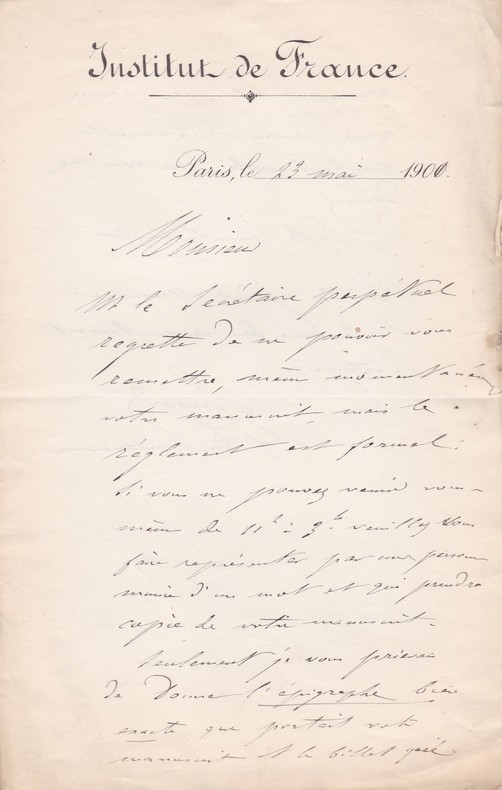 Institut de France.
Paris, le 23 mai 1900.
Monsieur
M le Secrétaire perpétuel
regrette de ne pouvoir vous
remettre, même momentaném
votre manuscrit, mais le
règlement est formel.
Si vous ne pouvez venir vous-
même de 11h à 3h veuillez vous
faire représenter par une personne
munie d'un mot et qui prendra
copie de votre manuscrit.
Seulement je vous prierai
de donner l'épigraphe bien
exacte que portait votre
manuscrit et le billet